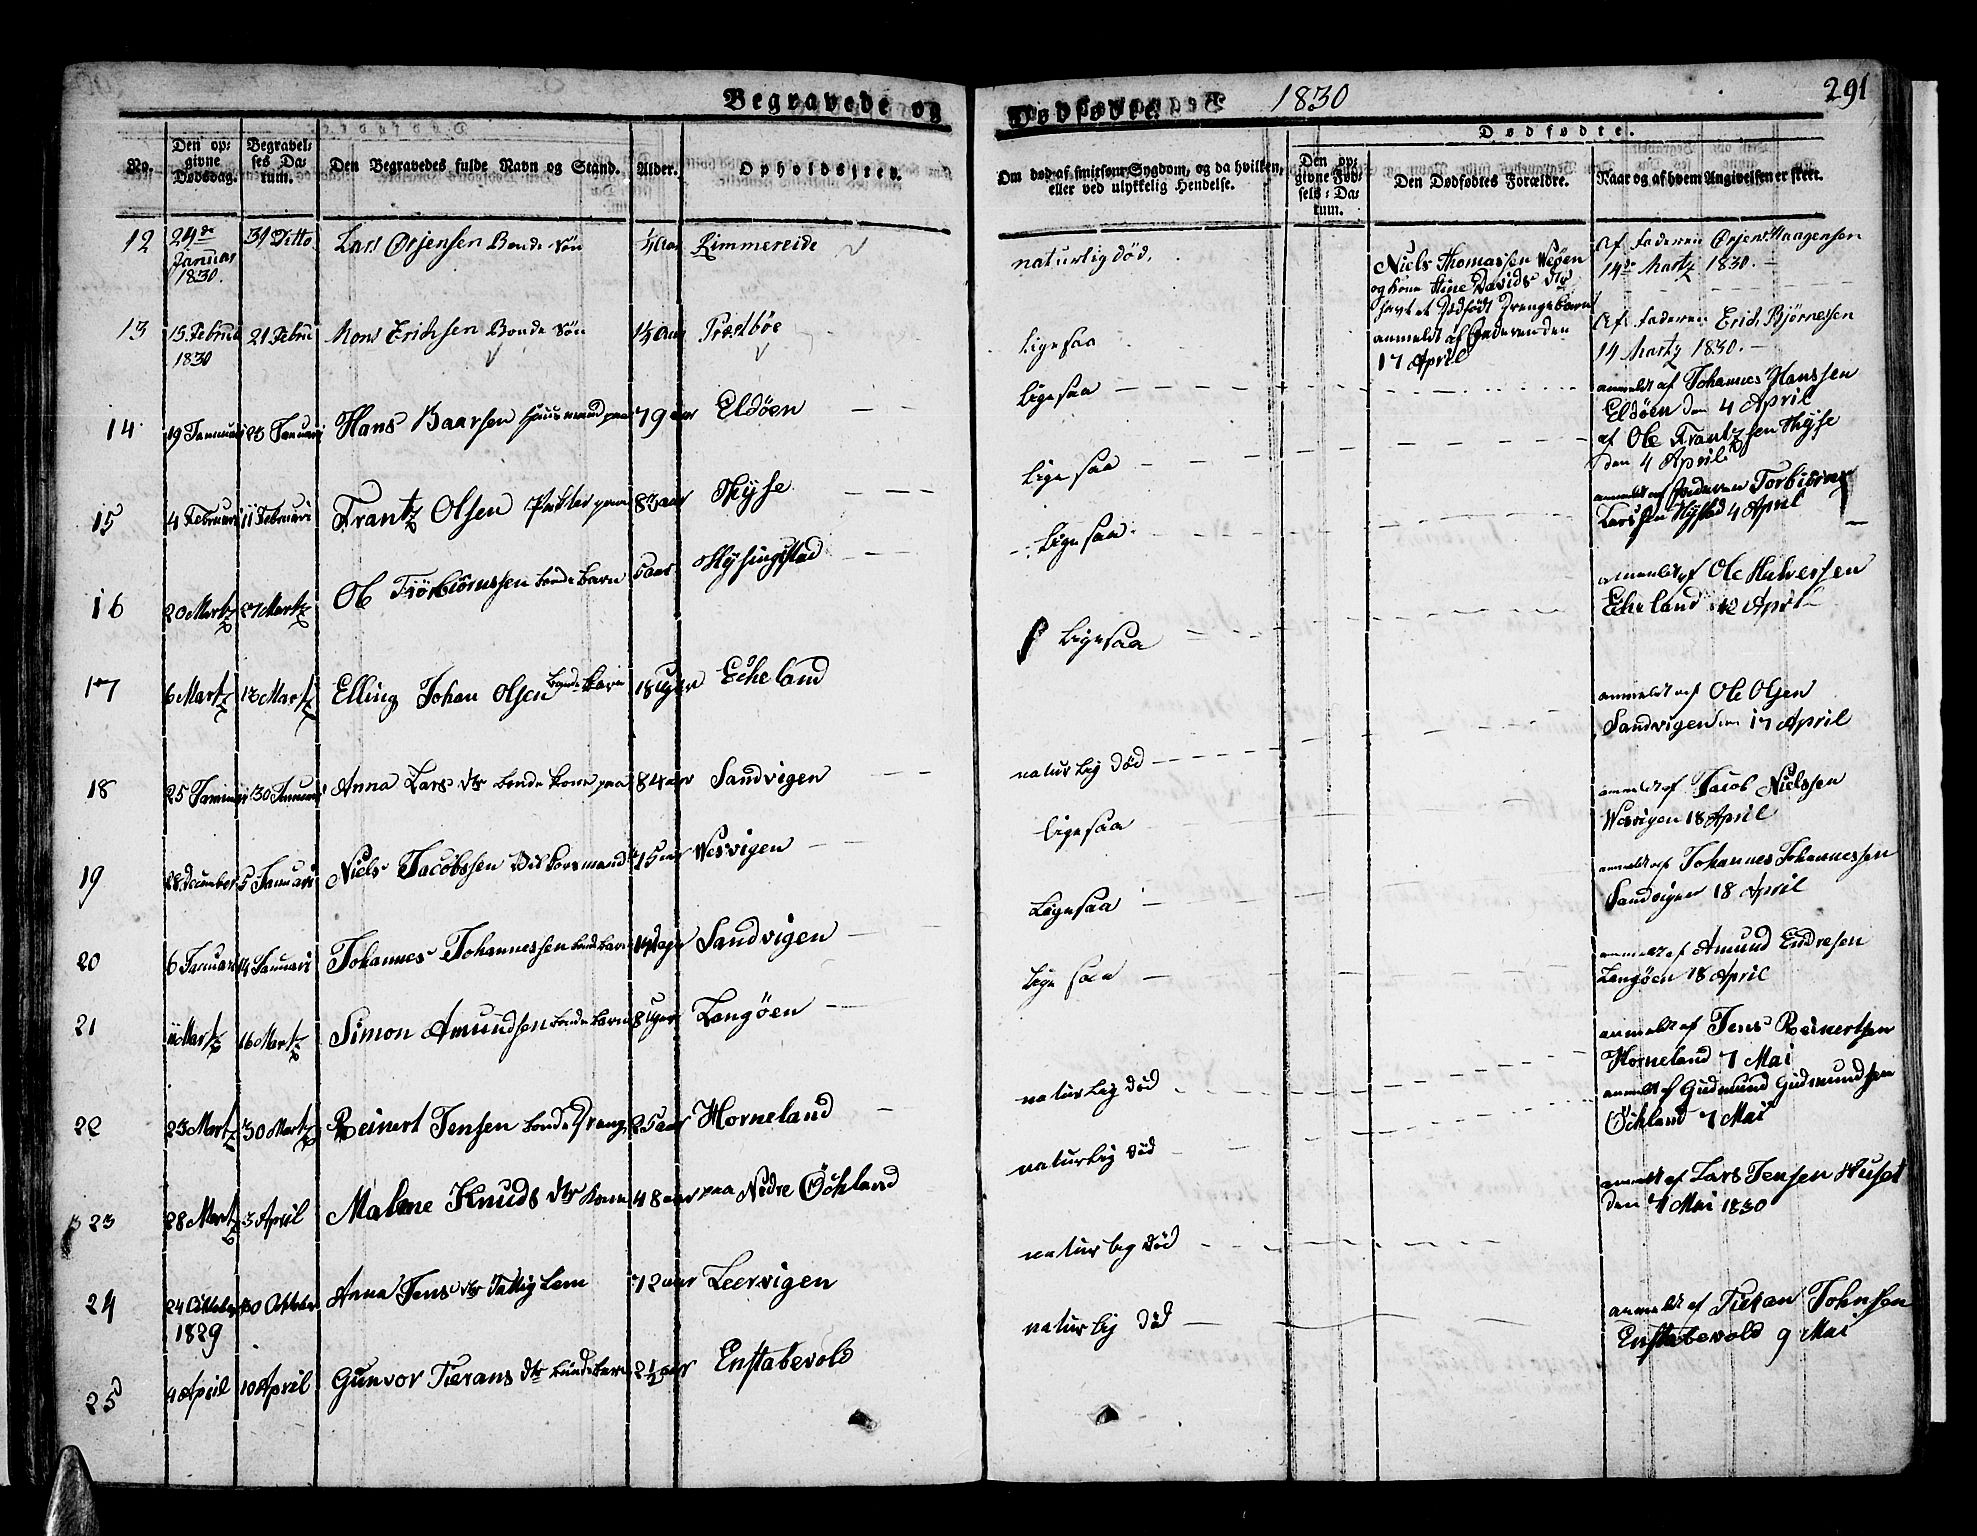 Begravede og Dødfødte. 1830 291
No. Den opgivne Dødsdag. Begravelses Datum. Den Begravedes fulde Navn og Stand. Alder. Opholdssted. Om død af smitsom Sygdom, og da hvilken, eller ved ulykkelig Hendelse. Den opgivne Fødsels-Datum. Den Dødfødtes Forældre. Naar og af hvem Angivelsen er skeet.
Dødfødte.
12 24de Januar 1830. 31 Ditto Lars Ørjensen Bonde Søn Rimmereide naturlig død. Af Faderen Ørjen Haagensen 14de Martz 1830.
Niels Thomassen Wegen
og Kone Stine Davids dtr
havt et Dødfødt Drengebarn
anmeldt af Faderen den
17 April
13 15 Februar 1830 21 Februar Mons Erichsen Bonde Søn Præstbøe ligesaa Af Faderen Erich Bjørnessen 14 Martz 1830.
14 19 Januari 28 Januari Hans Baarsen Huusmand paa 79 aar Eldøen ligesaa anmeldt af Johannes Hanssen Eldøen den 4 April
15 4 Februari 11 Februari Frantz Olsen paa 83 aar Hÿse ligesaa af Ole Frantzsen Hÿse den 4 April
16 20 Martz 27 Martz Ole Torbiörnssen bonde barn 5 aar Hysingstad ligesaa anmeldt af Faderen Torbiörn Larssen Hystad 4 April
17 6 Martz 13 Martz Elling Johan Olsen bonde barn 18 Uger Echeland ligesaa anmeldt af Ole Halversen Echeland 12 April
18 25 Januari 30 Januari Anna Lars dtr bonde kone paa 84 aar Sandvigen naturlig död anmeldt af Ole Olsen Sandvigen den 17 April
19 28 December 5 Januari Niels Jacobssen Vilkorsmand 75 aar Wesvigen ligesaa anmeldt af Jacob Nielssen Wesvigen 18 April
20 6 Januari 14 Januari Johannes Johannessen bonde barn 14 dage Sandvigen ligesaa anmeldt af Johannes Johannessen Sandvigen 18 April
21 11 Martz 16 Martz Simon Amundsen bonde barn 8 Uger Langöen lige saa anmeldt af Amund Endresen Langöen 18 April
22 23 Martz 30 Martz Reinert Jensen bonde Dreng 25 aar Horneland naturlig död anmeldt af Jens Reinertsen Horneland 7 Mai
23 28 Martz 3 April Malene Knuds dtr kone 48 aar paa Nedre Öchland naturlig död anmeldt af Gudmund Gudmundsen Öchland 7 Mai
24 24 Octtober 1829 30 Octtober Anna Jens dtr Fattig Lem 72 aar Leervigen naturlig död anmeldt af Lars Jensen Huset den 7 Mai 1830
25 4 April 10 April Gunvor Tierans dtr bonde barn 2½ aar Enstabevold naturlig död anmeldt af Tieran Johnsen Enstabevold 9 Mai